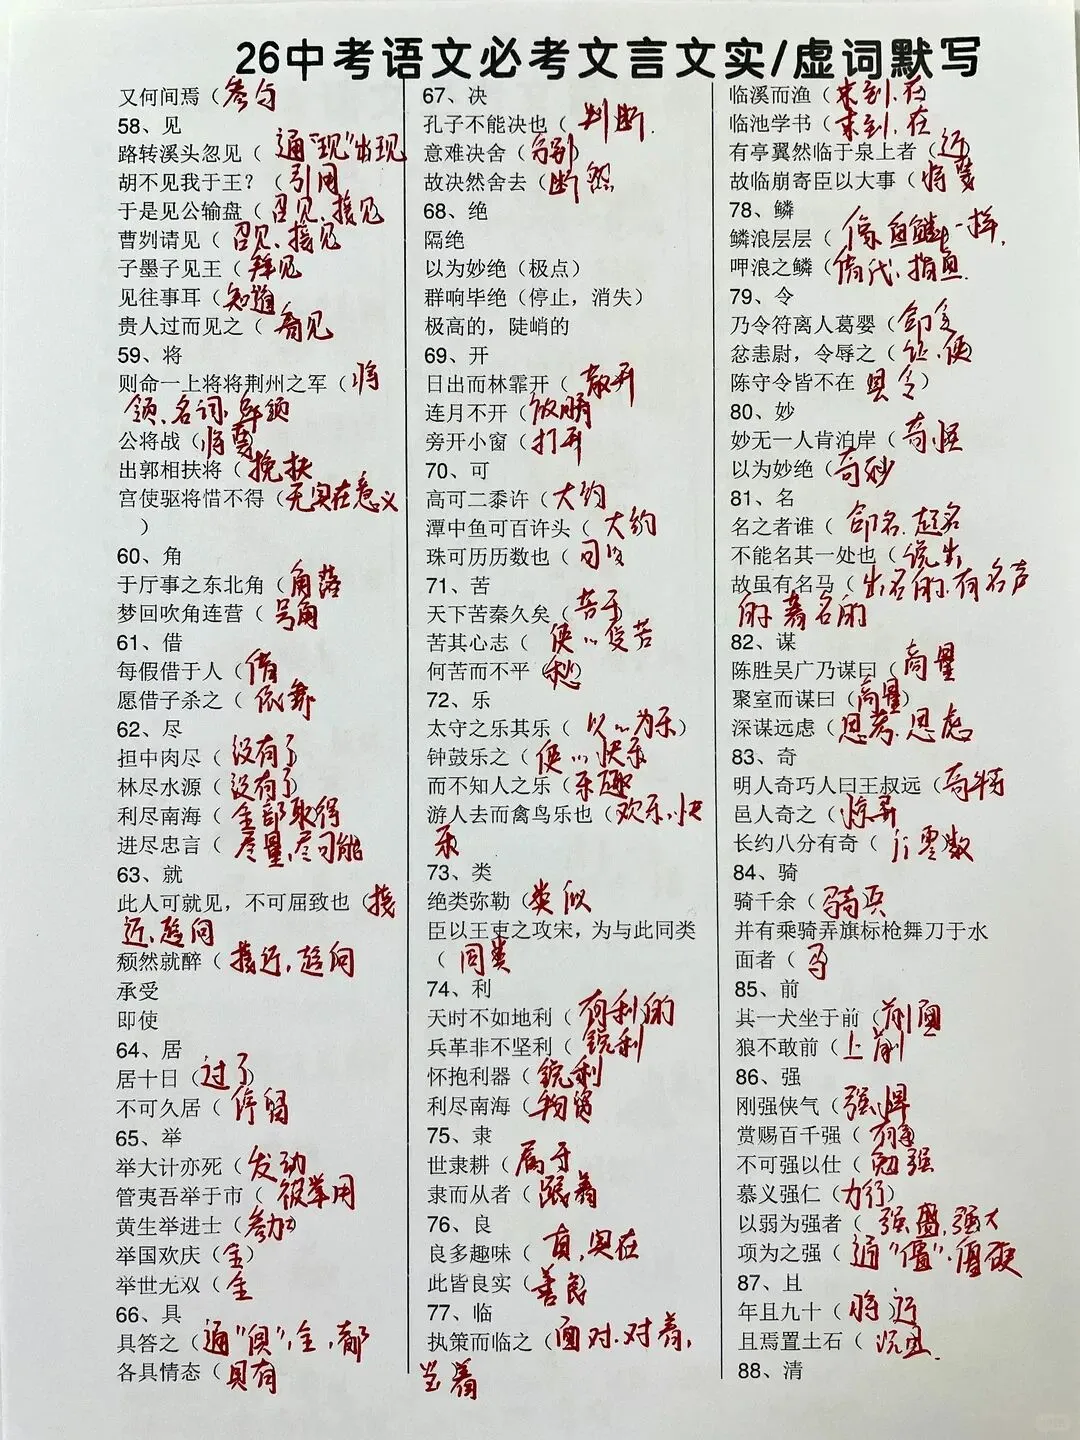 26中考语文必考文言文实/虚词默写
又何间焉（参与
58、见
路转溪头忽见（ 通"现"出现
胡不见我于王?（引用
于是见公输盘（召见、接见
曹刿请见（ 召见、接见
子墨子见王（拜见
见往事耳（知道
贵人过而见之（ 看见
59、将
则命一上将将荆州之军（将
领、名词、率领
公将战（将要）
出郭相扶将（搀扶
宫使驱将惜不得（无实在意义
）
60、角
于厅事之东北角（角落
梦回吹角连营（号角
61、借
每假借于人（借
愿借子杀之（
62、尽
担中肉尽（没有了）
林尽水源（没有了）
利尽南海（全部取得
进尽忠言（ 尽量,尽可能
63、就
此人可就见，不可屈致也（接
近、趋向
颓然就醉（接近, 趋向
承受
即使
64、居
居十日（过了）
不可久居（停留
65、举
举大计亦死（发动
管夷吾举于市（ 被举用
黄生举进士（参加）
举国欢庆（全）
举世无双（全
66、具
具答之（通"俱",全,都
各具情态（具有
67、决
孔子不能决也（ 判断.
意难决舍（分别）
故决然舍去（断然
68、绝
隔绝
以为妙绝（极点）
群响毕绝（停止，消失）
极高的，陡峭的
69、开
日出而林霏开（散开
连月不开（放晴
旁开小窗（打开
70、可
高可二黍许（大约
潭中鱼可百许头（大约
珠可历历数也（可以
71、苦
天下苦秦久矣（苦于
苦其心志（ 使…受苦
何苦而不平（愁）
72、乐
太守之乐其乐（ 以…为乐）
钟鼓乐之（使…快乐
而不知人之乐（乐趣
游人去而禽鸟乐也（欢乐、快
乐
73、类
绝类弥勒（类似
臣以王吏之攻宋，为与此同类
（ 同类
74、利
天时不如地利（有利的
兵革非不坚利（ 锐利
怀抱利器（锐利
利尽南海（物资
75、隶
世隶耕（属于
隶而从者（跟着
76、良
良多趣味（ 真,实在
此皆良实（善良
77、临
执策而临之（面对.对着,
当着
临溪而渔（来到.在
临池学书（来到.在
有亭翼然临于泉上者（近）
故临崩寄臣以大事（将要
78、鳞
鳞浪层层（ 像鱼鳞一样,
呷浪之鳞（借代、指鱼
79、令
乃令符离人葛婴（命令
忿恚尉，令辱之（让、使
陈守令皆不在（县令）
80、妙
妙无一人肯泊岸（奇怪
以为妙绝（奇妙
81、名
名之者谁（ 命名.起名
不能名其一处也（说出
故虽有名马（出名的、有名声
的、著名的
82、谋
陈胜吴广乃谋曰（商量
聚室而谋曰（商量）
深谋远虑（思考、思虑
83、奇
明人奇巧人曰王叔远（奇特
邑人奇之（惊异
长约八分有奇（jī零数
84、骑
骑千余（骑兵
并有乘骑弄旗标枪舞刀于水
面者（ 马
85、前
其一犬坐于前（前面
狼不敢前（上前
86、强
刚强侠气（强悍
赏赐百千强（有余
不可强以仕（勉强
慕义强仁（力行）
以弱为强者（强盛,强大
项为之强（通"僵".僵硬
87、且
年且九十（将近
且焉置土石（况且.
88、清